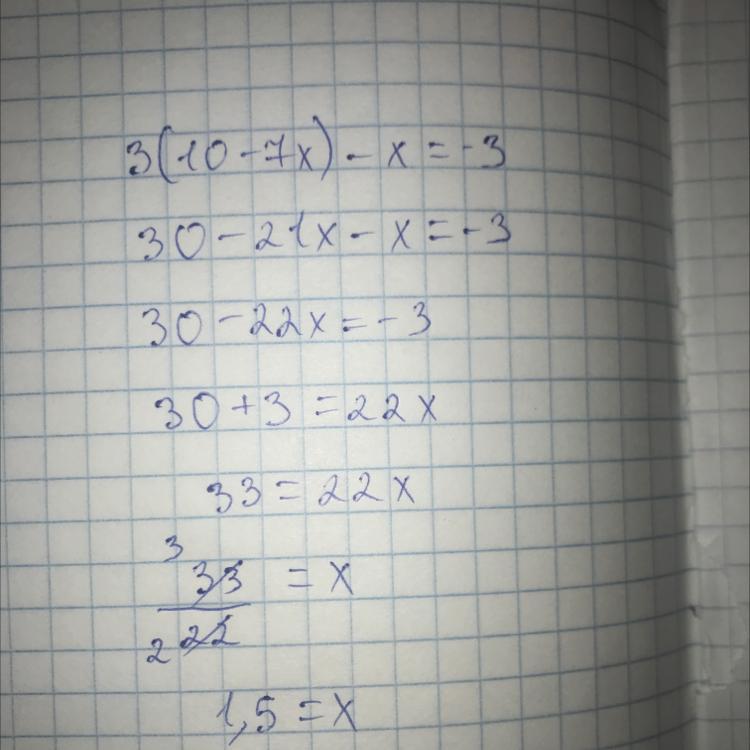 3(10-7x)-x=-3
30-21x-x=-3
30-22x=-3
30+3=22x
33=22x
3
33 = x
2 22
1,5=x